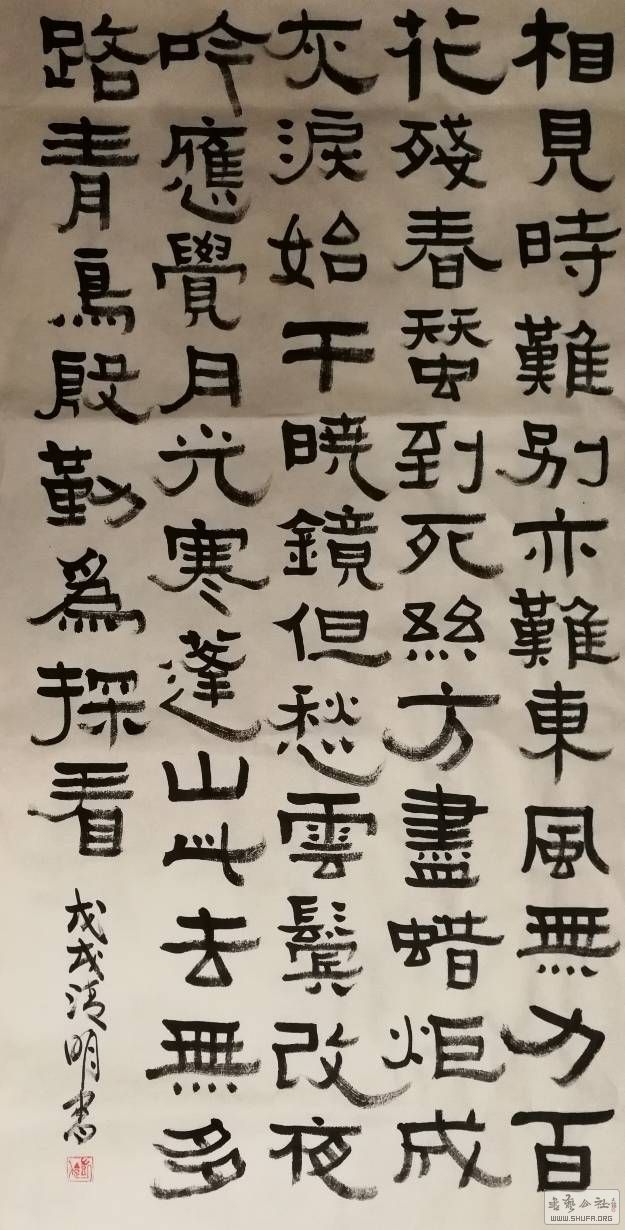 相見時難別亦難東風無力百
花殘春蚕到死絲方盡蜡炬成
灰淚始干曉鏡但愁雲鬢改夜
吟應覺月光寒蓬山此去無多
路青鳥殷勤為探看
戊戌清明書
WWW.SHUFA.ORG